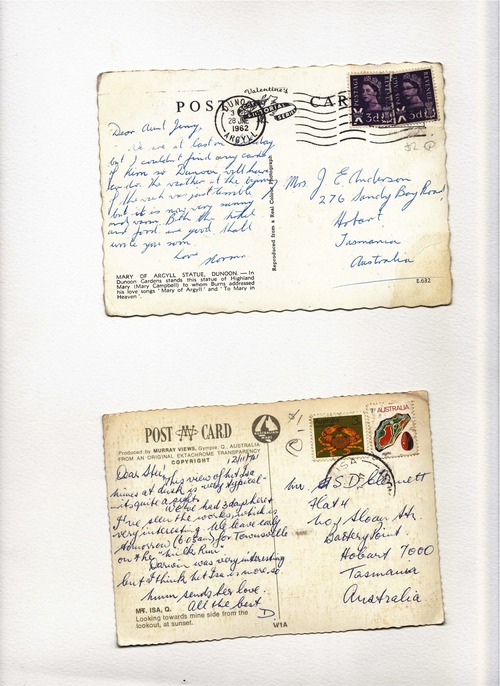 Valentine's
POST CARD
DUNOON
28 JNE
1962
ARGYLL
3d
3d
Dear Aunt Jenny,
We are at last on holiday
but I couldn't find any cards
of Kirn so Dunoon will have
to do. The weather at the beginning
of the week was just terrible
but it is now very sunny
and warm. Both the hotel
and food are good. Shall
write you soon.
Love Norma
Reproduced from a Real Colour Photograph
Mrs J. E. Anderson
276 Sandy Bay Road,
Hobart
Tasmania
Australia
MARY OF ARGYLL STATUE, DUNOON.—In
Dunoon Gardens stands this statue of Highland
Mary (Mary Campbell) to whom Burns addressed
his love songs 'Mary of Argyll' and 'To Mary in
Heaven'.
E.632
POST CARD
Produced by MURRAY VIEWS, Gympie, Q., AUSTRALIA
FROM AN ORIGINAL EKTACHROME TRANSPARENCY
COPYRIGHT
AUSTRALIA
ISA
Dear Stew,
This view of Mt Isa
mines at dusk is very typical -
its quite a sight.
We've had 3 days here &
I've seen the works, which is
very interesting. We leave early
tomorrow (6.05am) for Townsville
on the "milk run".
Darwin was very interesting
but I think Mt Isa is more so.
Mum sends her love.
All the best
D.
Mr. S. D. Clennett
Flat 4
Sloan Str.
Battery Point.
Hobart 7000
Tasmania
Australia
MT. ISA, Q.
Looking towards mine side from the
lookout, at sunset.
W1A